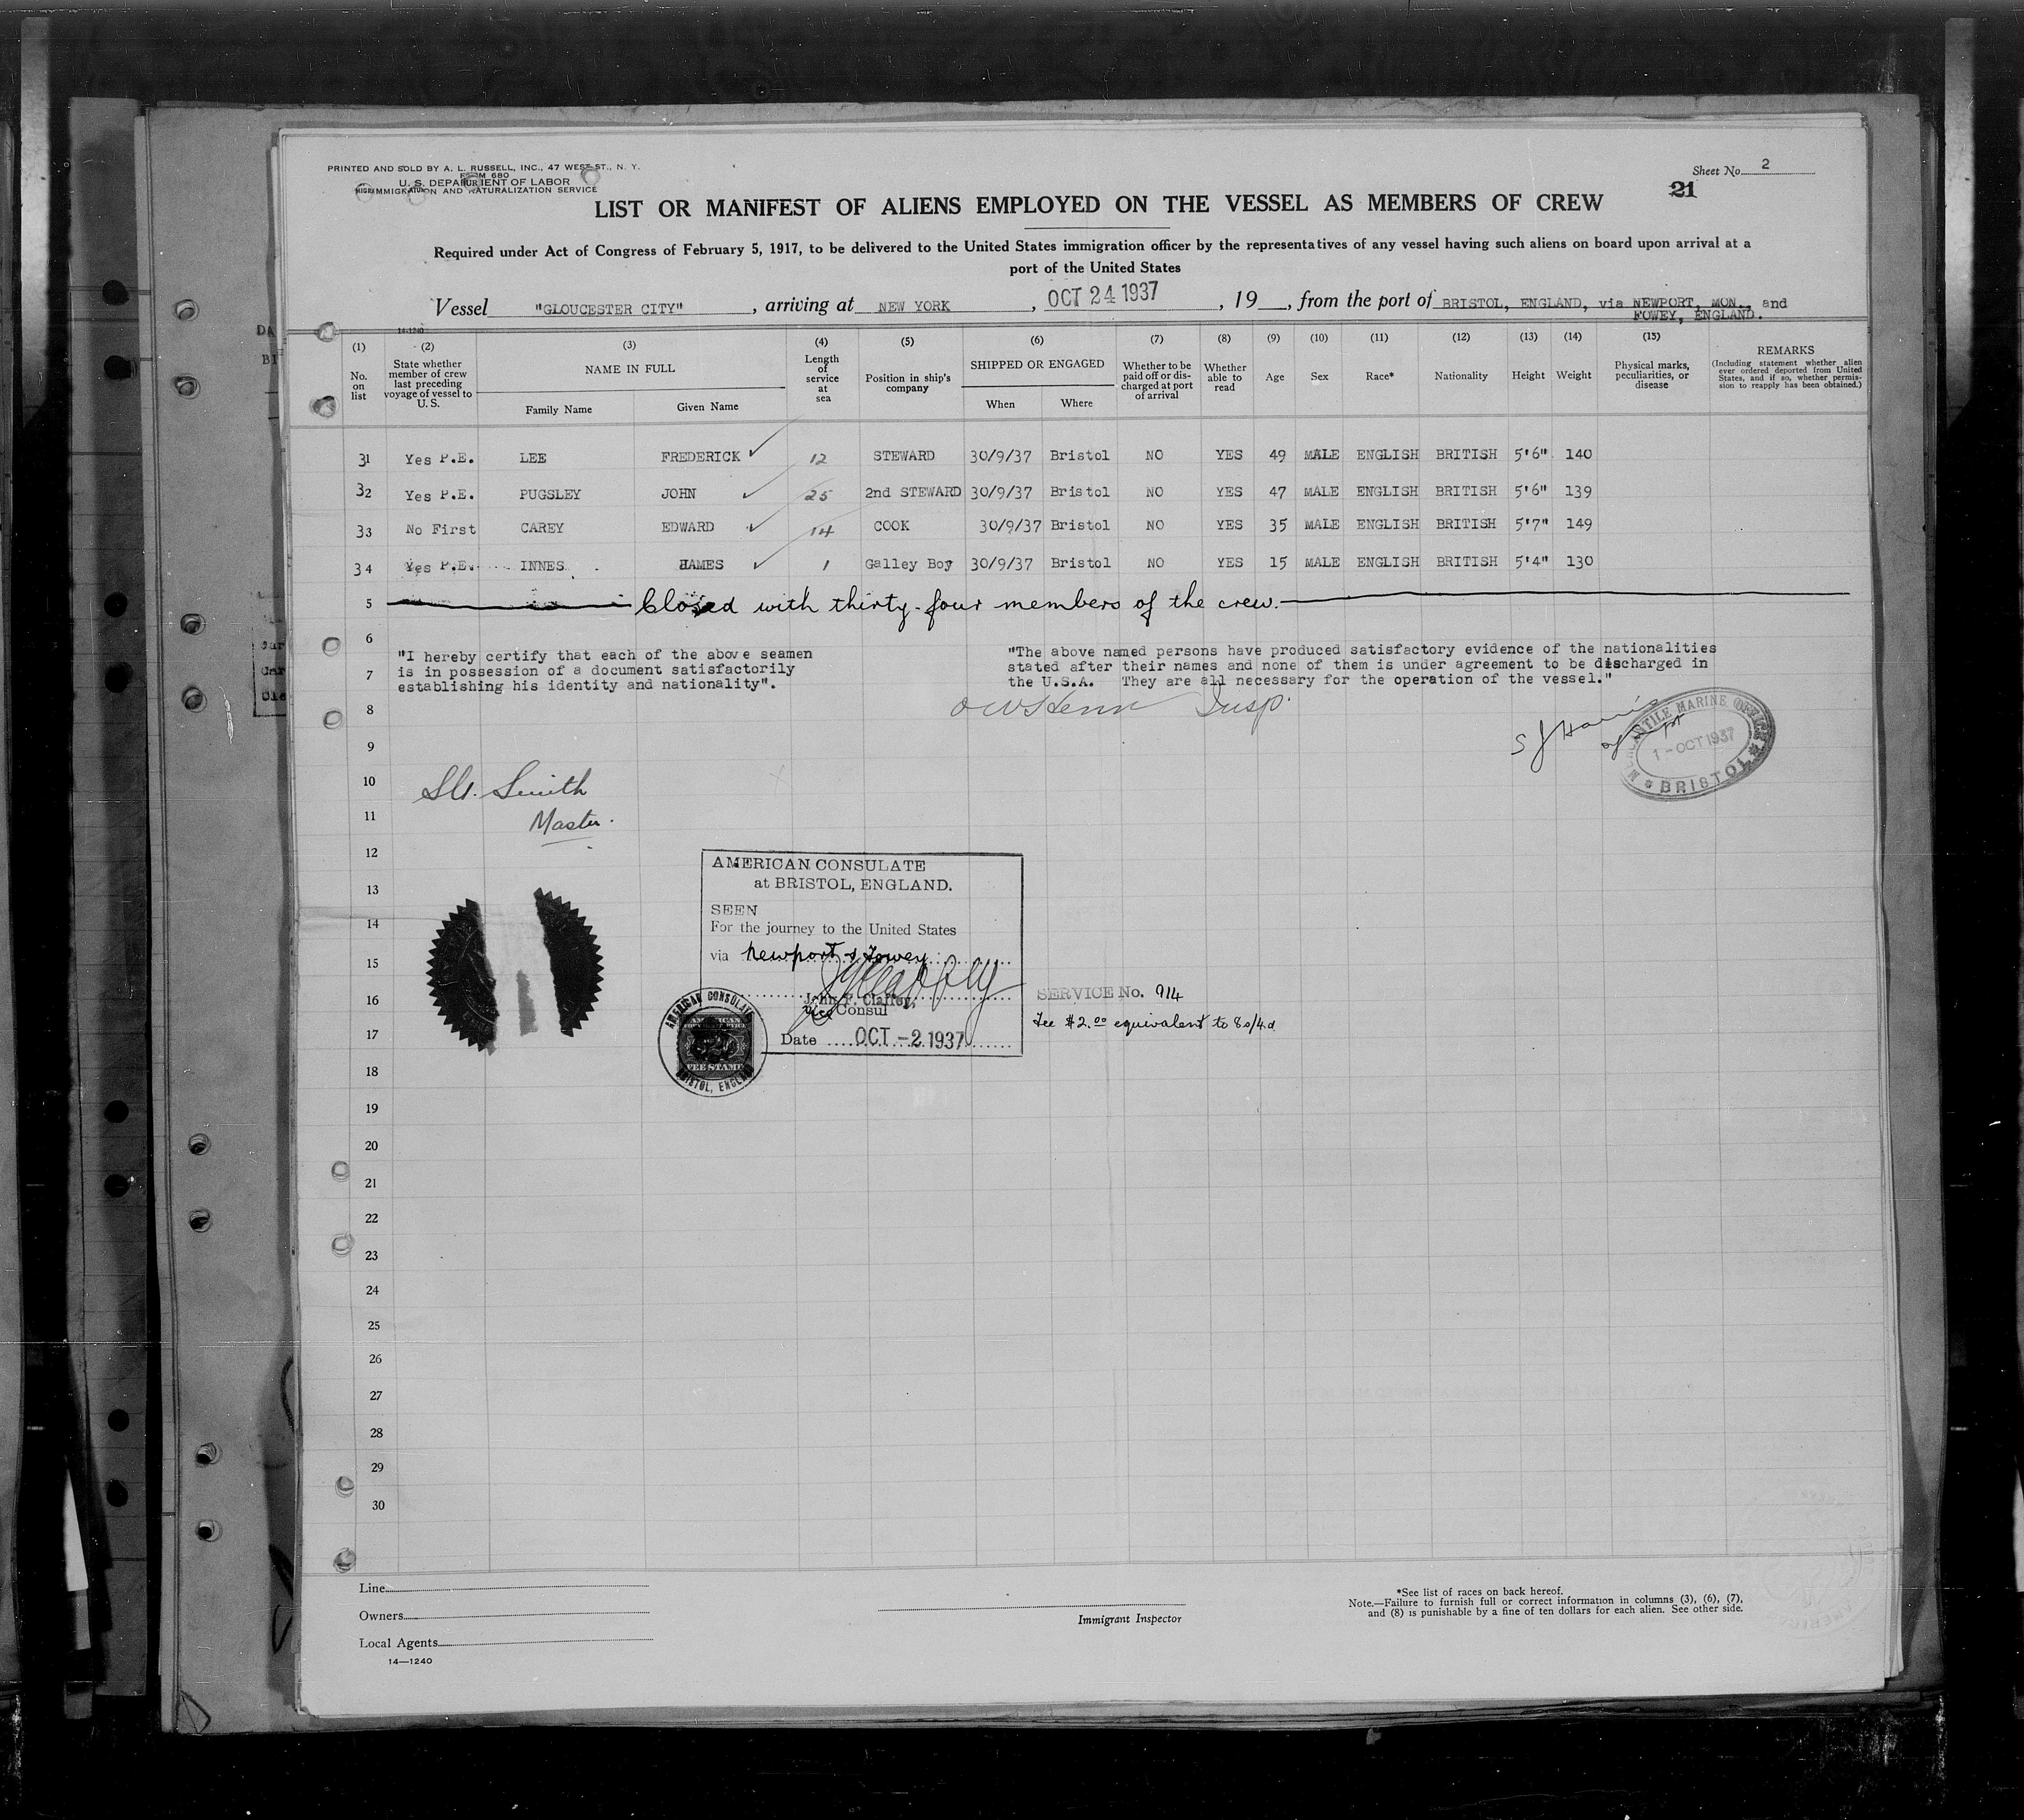 PRINTED AND SOLD BY A. L. RUSSELL, INC., 47 WEST ST., N. Y.
FORM 680
U. S. DEPARTMENT OF LABOR
IMMIGRATION AND NATURALIZATION SERVICE
Sheet No. 2
21
LIST OR MANIFEST OF ALIENS EMPLOYED ON THE VESSEL AS MEMBERS OF CREW
Required under Act of Congress of February 5, 1917, to be delivered to the United States immigration officer by the representatives of any vessel having such aliens on board upon arrival at a
port of the United States
Vessel "GLOUCESTER CITY", arriving at NEW YORK, OCT 24 1937, 19__, from the port of BRISTOL, ENGLAND, via NEWPORT, MON., and
FOWEY, ENGLAND.
14-1240
(1) (2) (3) (4) (5) (6) (7) (8) (9) (10) (11) (12) (13) (14) (15)
No. on list
State whether member of crew last preceding voyage of vessel to U. S.
NAME IN FULL
Family Name Given Name
Length of service at sea
Position in ship's company
SHIPPED OR ENGAGED
When Where
Whether to be paid off or discharged at port of arrival
Whether able to read
Age
Sex
Race*
Nationality
Height
Weight
Physical marks, peculiarities, or disease
REMARKS
(Including statement whether alien ever ordered deported from United States, and if so, whether permission to reapply has been obtained.)
31 Yes P.E. LEE FREDERICK ✓ 12 STEWARD 30/9/37 Bristol NO YES 49 MALE ENGLISH BRITISH 5'6" 140
32 Yes P.E. PUGSLEY JOHN ✓ 25 2nd STEWARD 30/9/37 Bristol NO YES 47 MALE ENGLISH BRITISH 5'6" 139
33 No First CAREY EDWARD ✓ 14 COOK 30/9/37 Bristol NO YES 35 MALE ENGLISH BRITISH 5'7" 149
34 Yes P.E. INNES JAMES ✓ 1 Galley Boy 30/9/37 Bristol NO YES 15 MALE ENGLISH BRITISH 5'4" 130
5 Closed with thirty-four members of the crew.
6
"I hereby certify that each of the above seamen
7 is in possession of a document satisfactorily
establishing his identity and nationality".
"The above named persons have produced satisfactory evidence of the nationalities
stated after their names and none of them is under agreement to be discharged in
the U.S.A. They are all necessary for the operation of the vessel."
8
Insp.
S J Harris
MERCANTILE MARINE OFFICE
1 - OCT 1937
BRISTOL
9
10
Smith
11
Master.
12
AMERICAN CONSULATE
at BRISTOL, ENGLAND.
13
SEEN
14
For the journey to the United States
15
via Newport & Fowey
16
John P. Claffey,
Vice Consul
SERVICE No. 914
Fee $2.00 equivalent to 8s/4d
17
Date OCT -2 1937
AMERICAN CONSULATE
AMERICAN
FEE STAMP
BRISTOL, ENGLAND
18
19
20
21
22
23
24
25
26
27
28
29
30
Line
Owners
Local Agents
14—1240
Immigrant Inspector
*See list of races on back hereof.
Note.—Failure to furnish full or correct information in columns (3), (6), (7),
and (8) is punishable by a fine of ten dollars for each alien. See other side.